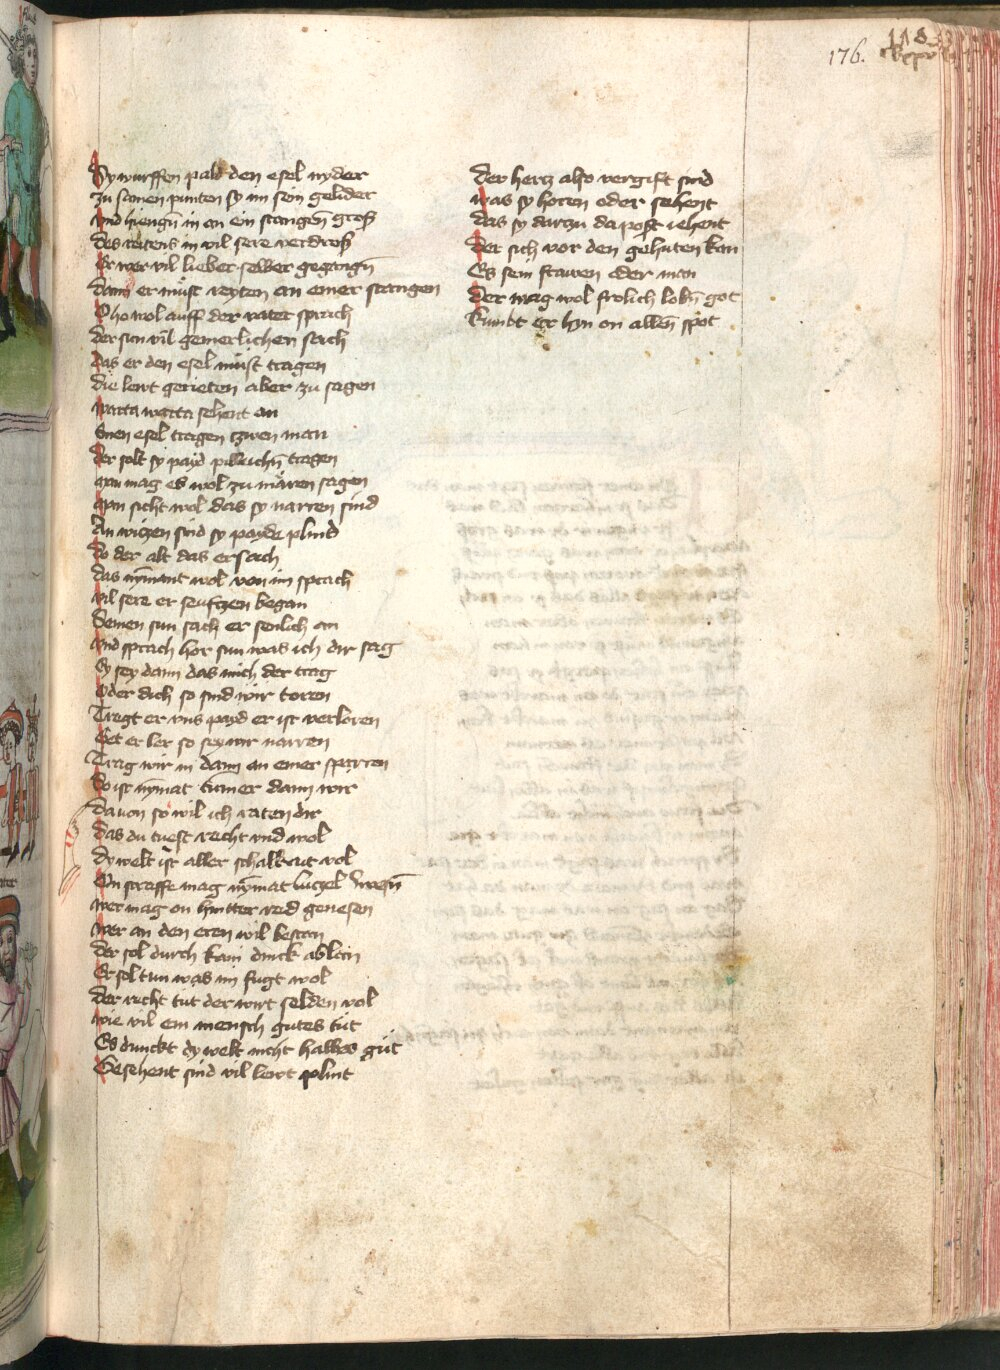 176.
118
Sy wurffen pald den esel nyder
zu samen punten sy im sein gelider
vnd hiengn̄ in an ein stangen̄ groß
des reitens in vil sere verdroß
Er wer vil lieber selber gegangn̄
dann er müst reyten an einer stangen
Oho wol auff der vater sprach
der sun vil iemerlichen sach
das er den esel müst tragen
die lewt gerieten aber zu sagen
warta warta sehent an
Einen esel tragen tzwen man
der solt sy payd pillichn̄ tragen
man mag es wol zu mären sagen
man sicht wol das sy narren sind
An witzen sind sy payde plind
Do der alt das ersach
das nymant wol von im sprach
vil sere er seuftzen began
Seinen sun sach er senlich an
vnd sprach hor sun was ich dir sag
Ey sey dann das mich der trag
Oder dich so sind wir toren
Tregt er vns payd er ist verloren
Get er ler so sey wir narren
Trag wir in dann an einer sparren
So ist nymat tumer dann wir
dauon so wil ich raten dir
das du tuest recht vnd wol
dy welt ist aller schalkeit vol
On straffe mag nymat lutzel wesn̄
wer mag on hintter red genesen
wer an den eren wil bestan
der sol durch kain dinck ablan
Er sol tun was im fugt wol
der nicht tut der wirt selden vol
wie vil ein mensch gutes tüt
Es dunckt dy welt nicht halbes güt
Gesehent sind vil lewt plint
der hertz also vergift sind
was sy horen oder sehent
das sy dartzu das post iehent
der sich vor den gehuten kan
Es sein frawen oder man
der mag wol frolich lobn̄ got
kumbt er hyn on allen̄ spot